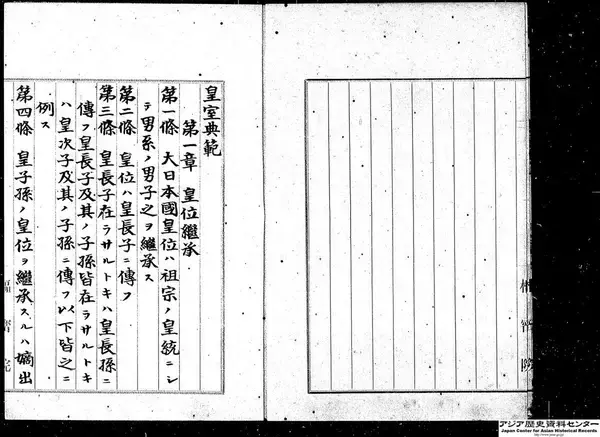 皇室典範
第一章 皇位繼承
第一條 大日本國皇位ハ祖宗ノ皇統ニシ
テ男系ノ男子之ヲ繼承ス
第二條 皇位ハ皇長子ニ傳フ
第三條 皇長子在ラサルトキハ皇長孫ニ
傳フ皇長子及其ノ子孫皆在ラサルトキ
ハ皇次子及其ノ子孫ニ傳フ以下皆之ニ
例ス
第四條 皇子孫ノ皇位ヲ繼承スルハ嫡出
アジア歴史資料センター
Japan Center for Asian Historical Records
http://www.jacar.go.jp/